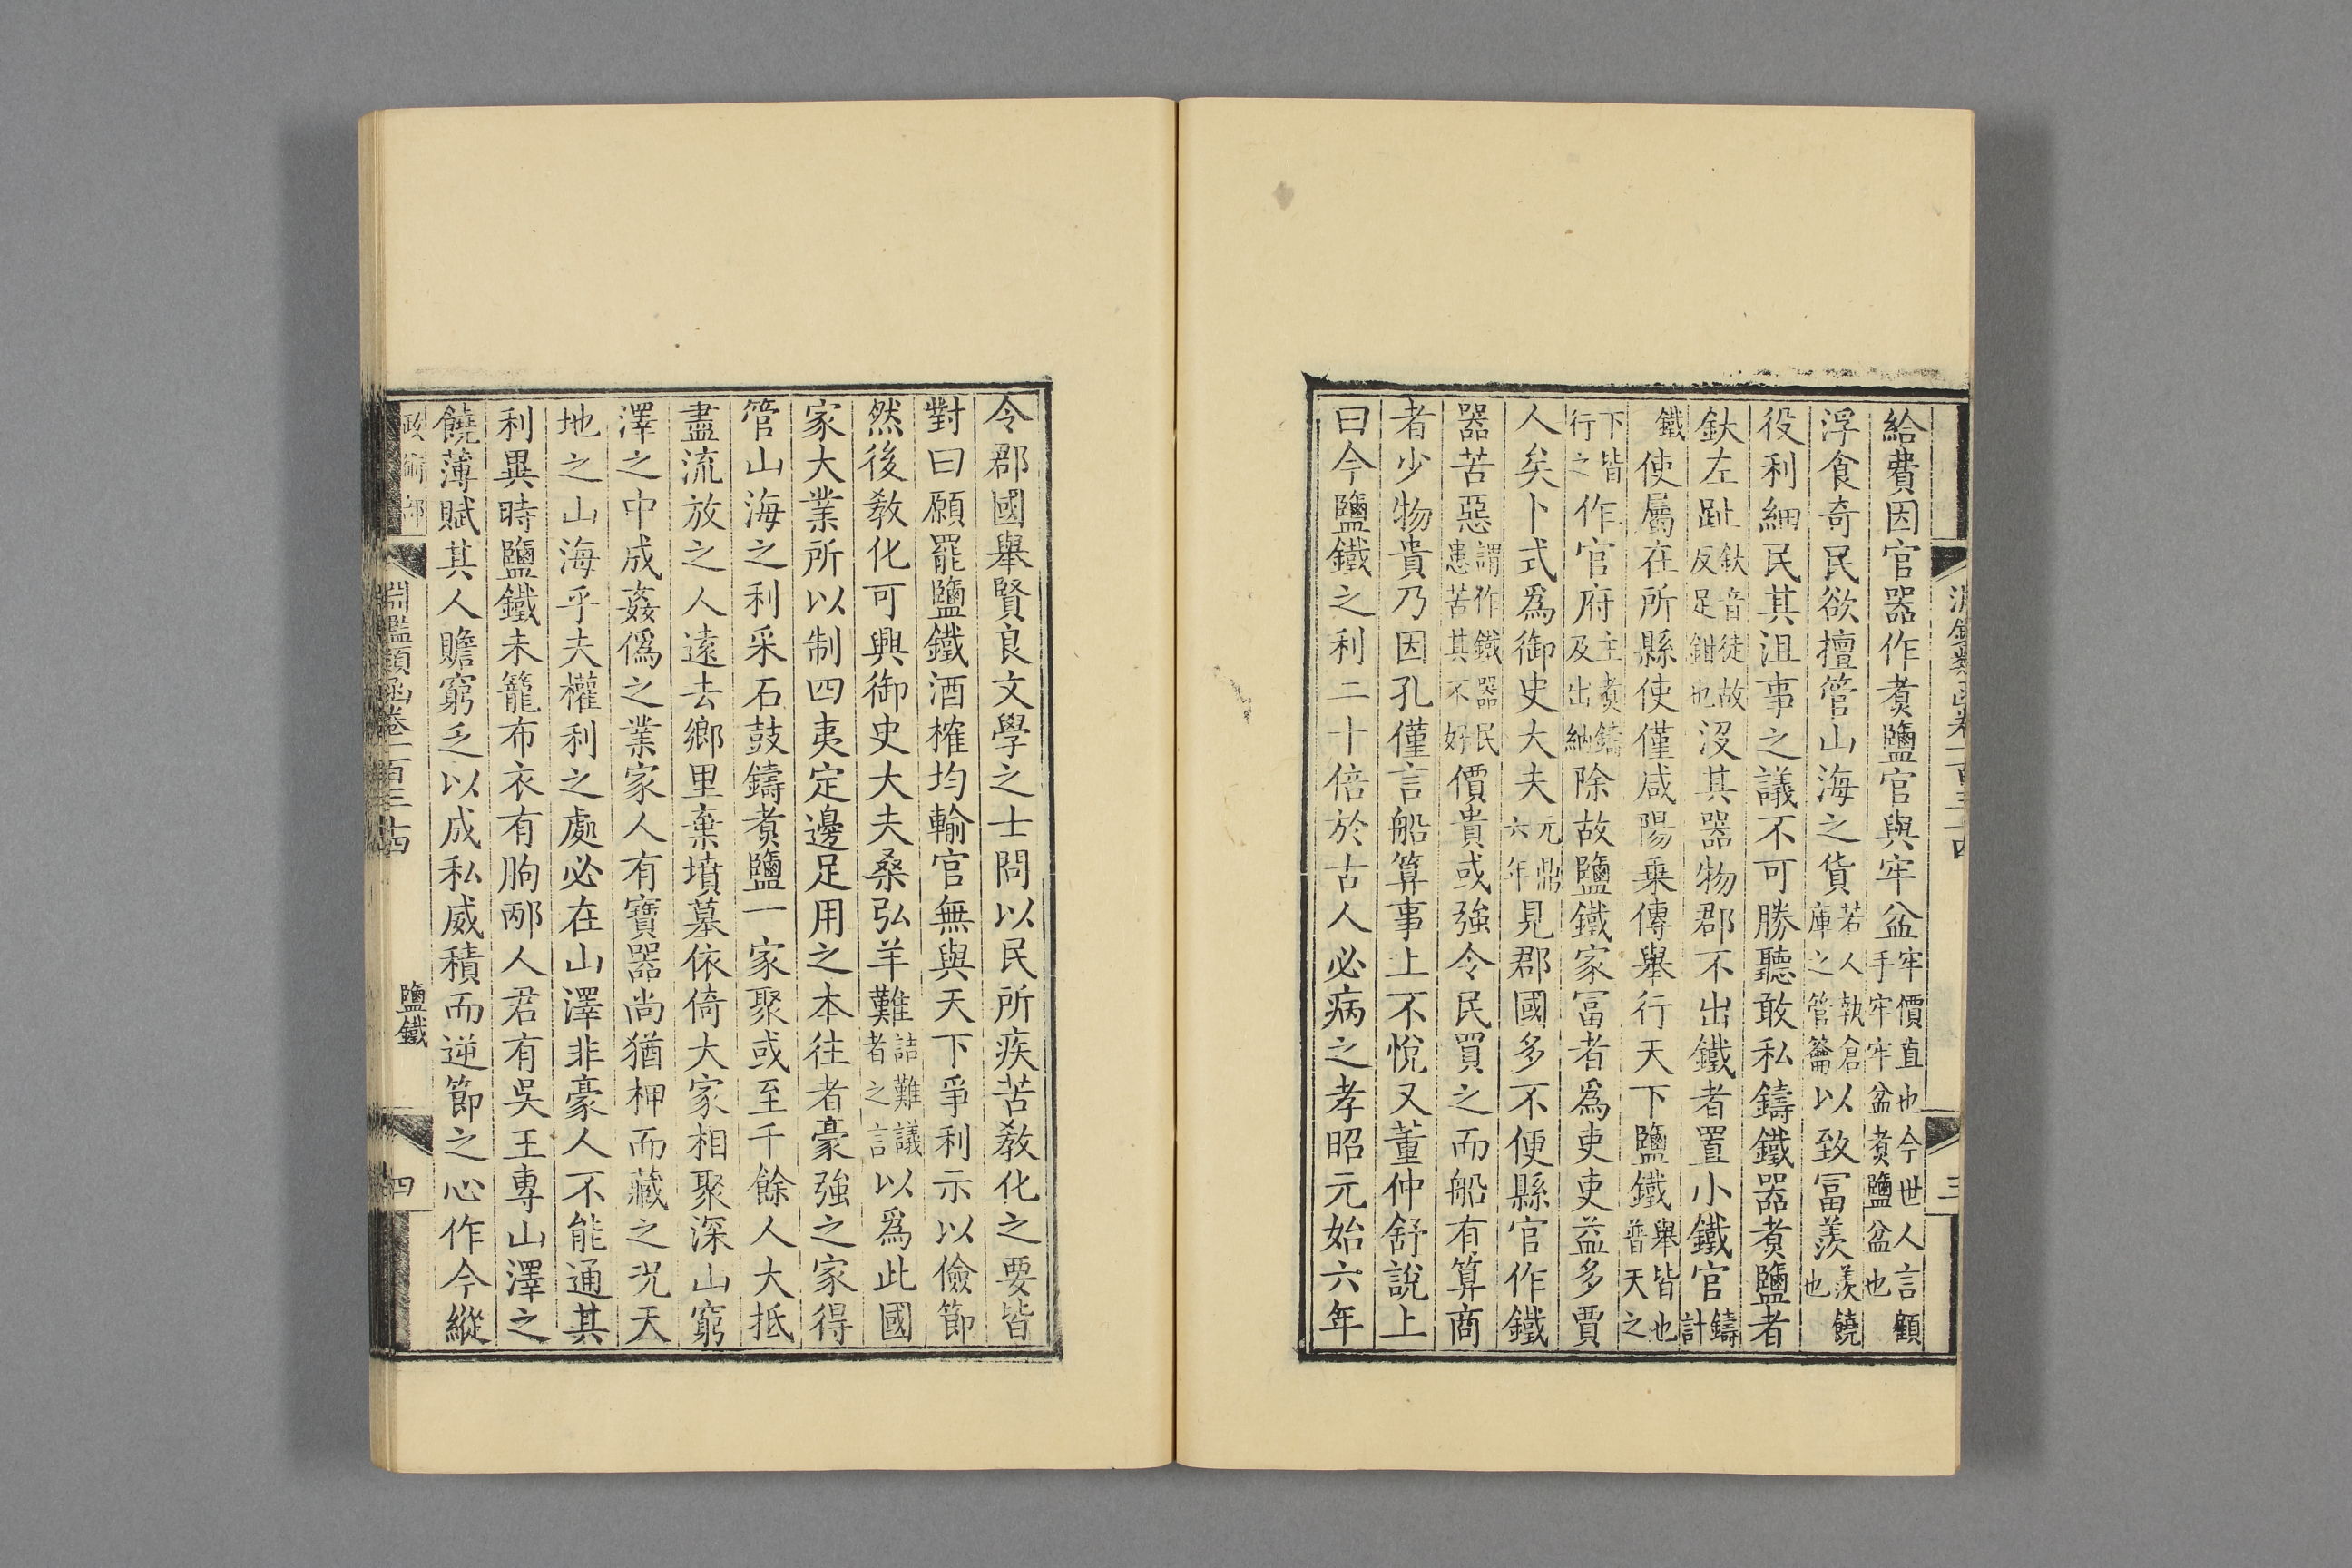 給費因官器作煑鹽官與牢盆牢價直也今世人言顧手牢牢盆煑鹽盆也
浮食奇民欲擅管山海之貨若人執倉庫之管籥以致冨羨羨饒也
役利細民其沮事之議不可勝聽敢私鑄鐵器煑鹽者
釱左趾釱音徒故反足鉗也沒其器物郡不出鐵者置小鐵官鑄計
鐵使屬在所縣使僅咸陽乗傳舉行天下鹽鐵舉皆也普天之
下皆行之作官府主煑鑄及出納除故鹽鐵家冨者爲吏吏益多賈
人矣卜式爲御史大夫元鼎六年見郡國多不便縣官作鐵
器苦惡謂作鐵器民患苦其不好價貴或强令民買之而船有算商
者少物貴乃因孔僅言船算事上不悅又董仲舒說上
曰今鹽鐵之利二十倍於古人必病之孝昭元始六年
令郡國舉賢良文學之士問以民所疾苦教化之要皆
對曰願罷鹽鐵酒榷均輸官無與天下爭利示以儉節
然後教化可興御史大夫桑弘羊難詰難議者之言以爲此國
家大業所以制四夷定邊足用之本往者豪强之家得
管山海之利采石鼓鑄煑鹽一家聚或至千餘人大抵
盡流放之人遠去鄉里棄墳墓依倚大家相聚深山窮
澤之中成姦僞之業家人有寶器尚猶柙而藏之况天
地之山海乎夫權利之處必在山澤非豪人不能通其
利異時鹽鐵未籠布衣有朐邴人君有吳王專山澤之
饒薄賦其人贍窮乏以成私威積而逆節之心作今縱
政術部 淵鑑類函卷一百三十四 鹽鐵 四